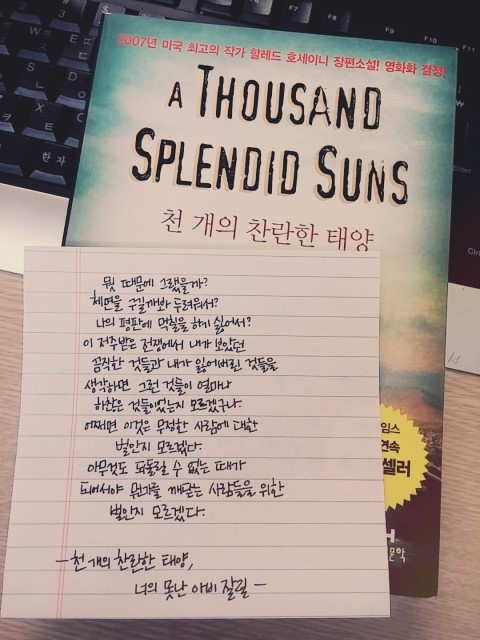 2007년 미국 최고의 작가 할레드 호세이니 장편소설! 영화화 결정!
A THOUSAND
SPLENDID SUNS
천 개의 찬란한 태양
뭣 때문에 그랬을까?
체면을 구길까봐 두려워서?
나의 평판에 먹칠을 하게 싫어서?
이 저주받은 전쟁에서 내가 보았던
끔직한 것들과 내가 잃어버린 것들을
생각하면 그런 것들이 얼마나
하찮은 것들이었는지 모르겠구나.
어쩌면 이것은 무정한 사람에 대한
벌인지 모르겠다.
아무것도 되돌릴 수 없는 때가
되어서야 무언가를 깨닫는 사람들을 위한
벌인지 모르겠다.
- 천 개의 찬란한 태양,
너의 못난 아비 잘릴 -
임스
연속
셀러
문학
한자
F6
F7
F8
F9
F10
F11
Enter
Ctrl